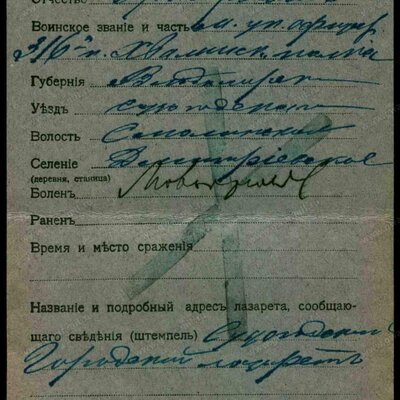 Отчество
Воинское званіе и часть мл. ун. офицер
316 п. Хвалынск. полка
Губернія Владимірск
Уѣздъ Судогодскій
Волость
Селеніе Дмитріевское
(деревня, станица)
Боленъ
Раненъ
Время и мѣсто сраженія
Названіе и подробный адресъ лазарета, сообщаю-
щаго свѣдѣнія (штемпель) Судогодскій
Городской лазаретъ